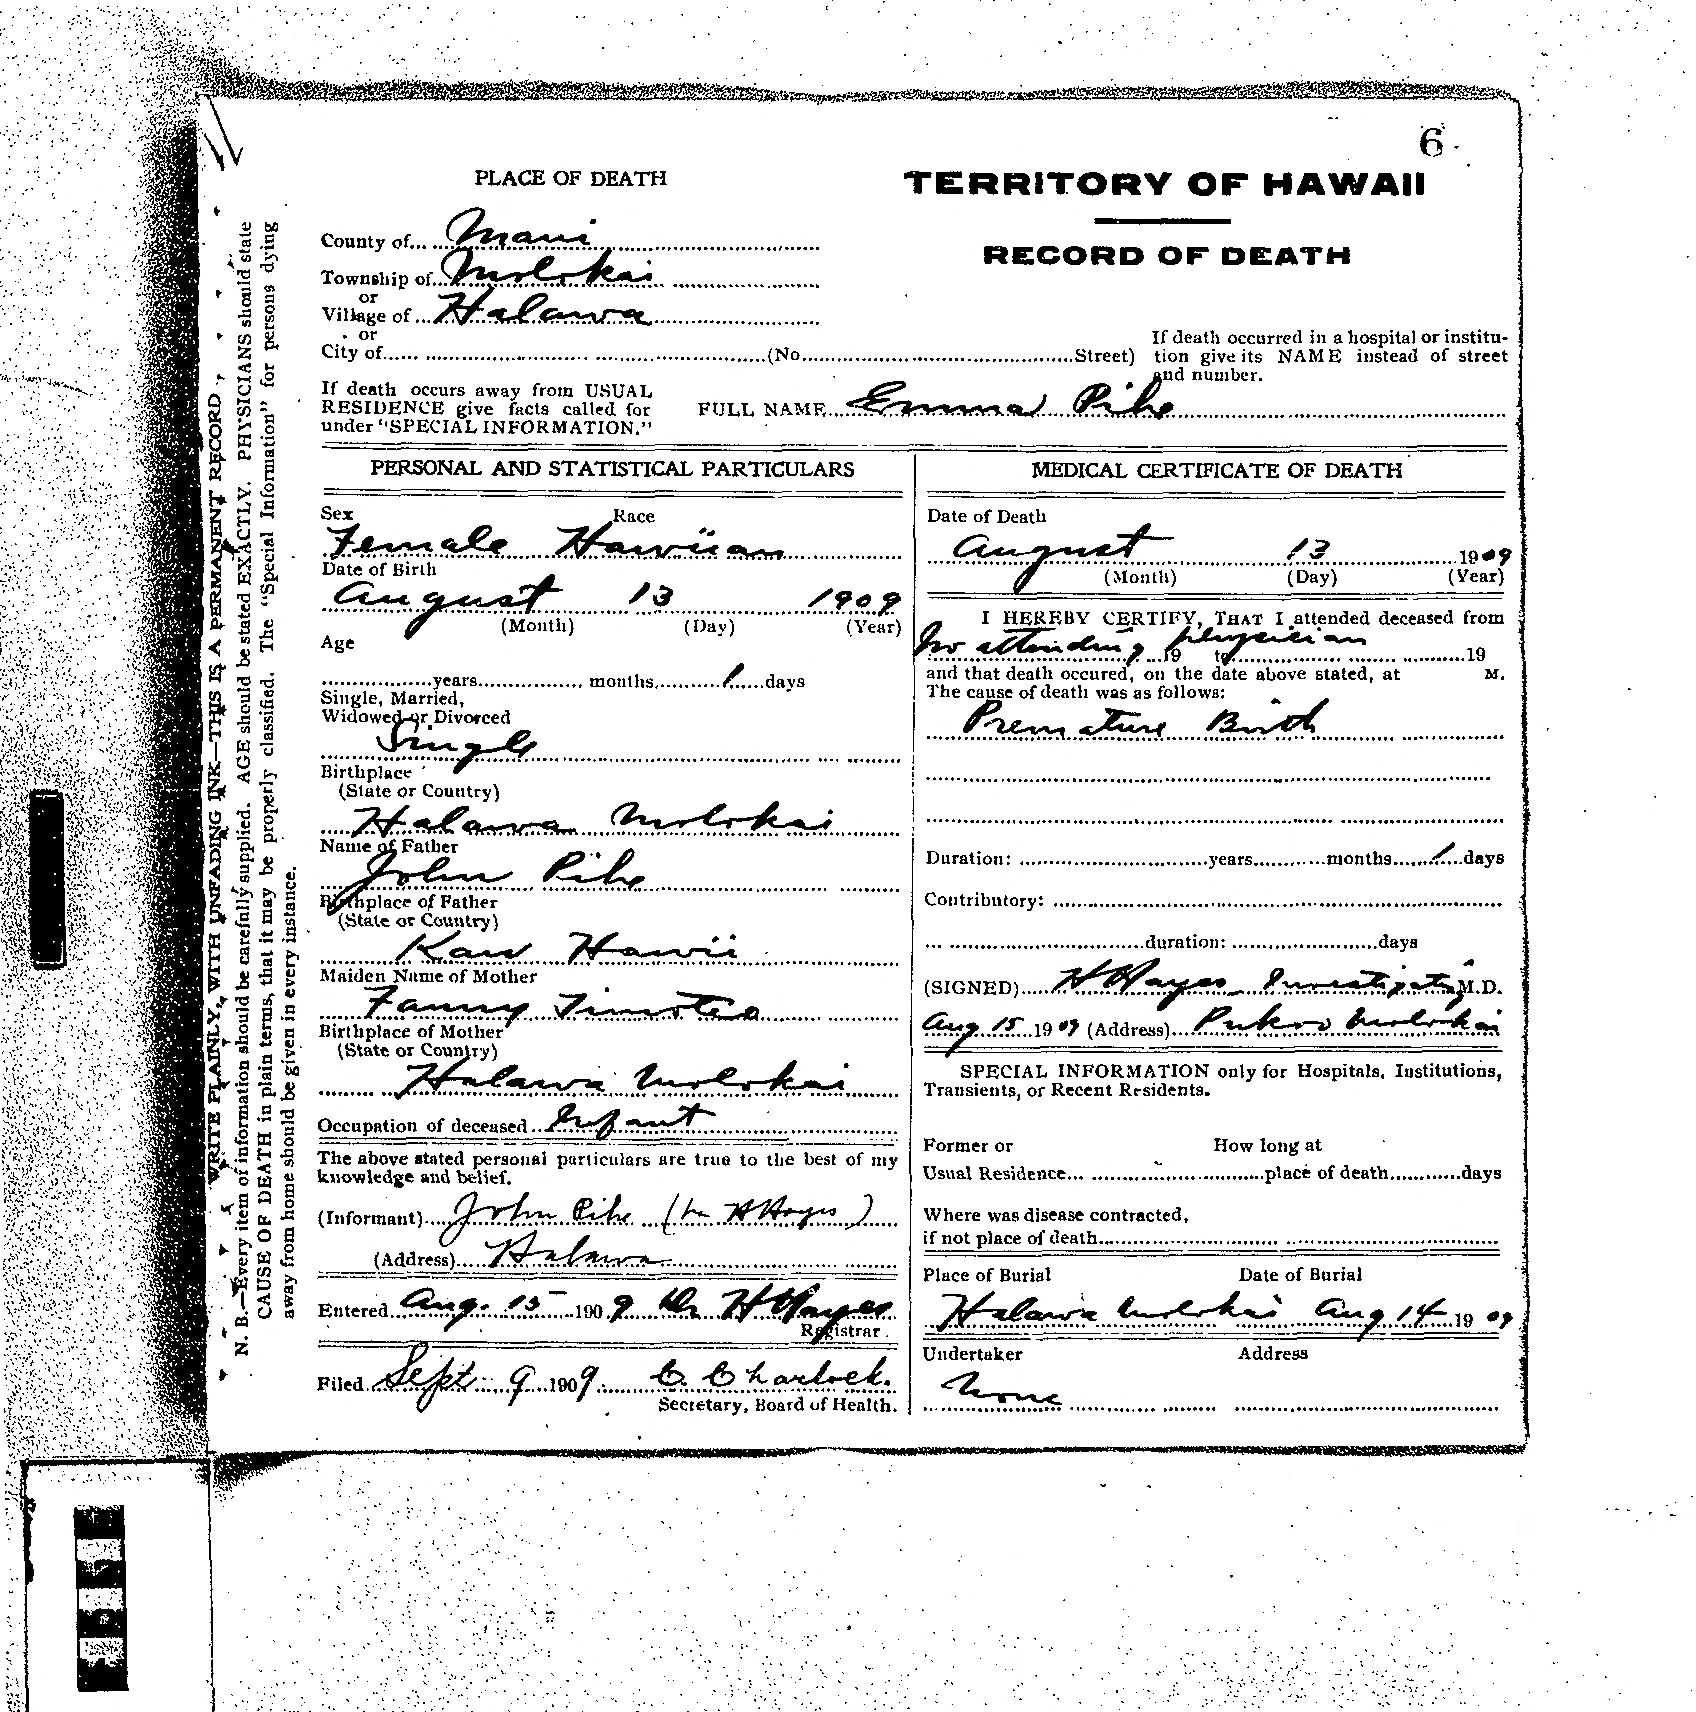 6
PLACE OF DEATH
TERRITORY OF HAWAII
RECORD OF DEATH
County of Maui
Township of Molokai
or
Village of Halawa
or
City of (No. Street)
If death occurred in a hospital or institu-
tion give its NAME instead of street
and number.
If death occurs away from USUAL
RESIDENCE give facts called for
under "SPECIAL INFORMATION."
FULL NAME Emma Pihe
PERSONAL AND STATISTICAL PARTICULARS
Sex Race
Female Hawiian
Date of Birth
August 13 1909
(Month) (Day) (Year)
Age
years months 1 days
Single, Married,
Widowed or Divorced
Single
Birthplace
(State or Country)
Halawa Molokai
Name of Father
John Pihe
Birthplace of Father
(State or Country)
Kau Hawii
Maiden Name of Mother
Fanny Timoteo
Birthplace of Mother
(State or Country)
Halawa Molokai
Occupation of deceased Infant
The above stated personal particulars are true to the best of my
knowledge and belief.
(Informant) John Pihe ( H Hayes )
(Address) Halawa
Entered Aug. 15 1909 H Hayes
Registrar.
Filed Sept 9 1909. C. Charlock.
Secretary, Board of Health.
MEDICAL CERTIFICATE OF DEATH
Date of Death
August 13 1909
(Month) (Day) (Year)
I HEREBY CERTIFY, THAT I attended deceased from
No attending physician 19 to 19
and that death occured, on the date above stated, at M.
The cause of death was as follows:
Premature Birth
Duration: years months 1 days
Contributory:
duration: days
(SIGNED) H Hayes Investigating M.D.
Aug 15 1909 (Address) Pukoo Molokai
SPECIAL INFORMATION only for Hospitals, Institutions,
Transients, or Recent Residents.
Former or How long at
Usual Residence place of death days
Where was disease contracted,
if not place of death
Place of Burial Date of Burial
Halawa Molokai Aug 14 1909
Undertaker Address
None
WRITE PLAINLY, WITH UNFADING INK—THIS IS A PERMANENT RECORD
N. B.—Every item of information should be carefully supplied. AGE should be stated EXACTLY. PHYSICIANS should state
CAUSE OF DEATH in plain terms, that it may be properly classified. The "Special Information" for persons dying
away from home should be given in every instance.